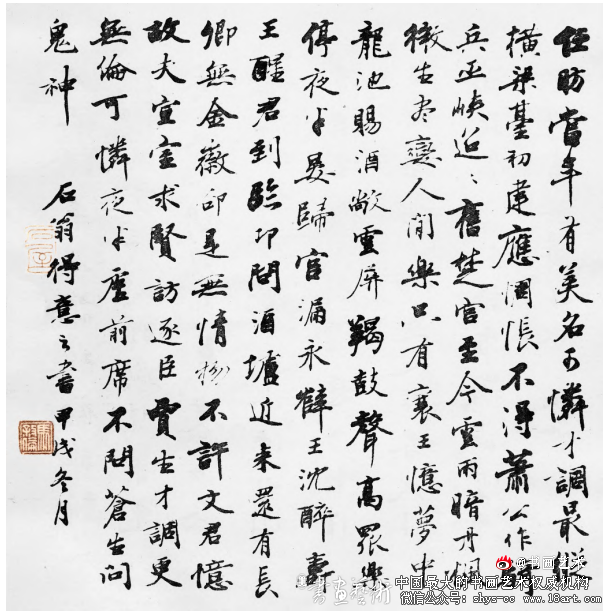 任昉當年有美名可憐才調最縱
橫梁臺初建應惆悵不得蕭公作騎
兵巫峽迢〻舊楚宮至今雲雨暗丹楓
微生盡戀人間樂只有襄王憶夢中
龍池賜酒敞雲屏羯鼓聲高眾樂
停夜半晏歸宮漏永薛王沈醉壽
王醒君到臨邛問酒壚近來還有長
卿無金徽卻是無情物不許文君憶
故夫宣室求賢訪逐臣賈生才調更
無倫可憐夜半虛前席不問蒼生問
鬼神
石翁得意之書甲戌冬月
@书画艺术
中国最大的书画艺术权威机构
微信公众号：shys-cc www.18art.com